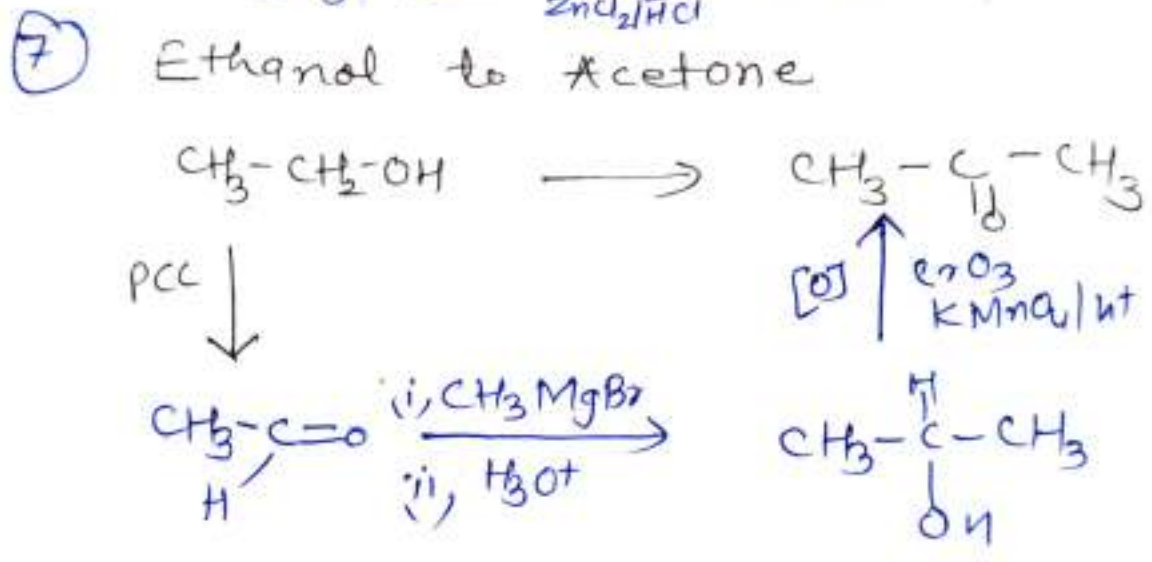 ZnCl2/HCl
7 Ethanol to Acetone
CH3-CH2-OH → CH3-C-CH3
O
PCC [O] CrO3
KMnO4/H+
CH3-C=O i, CH3MgBr H
H ii, H3O+ CH3-C-CH3
OH